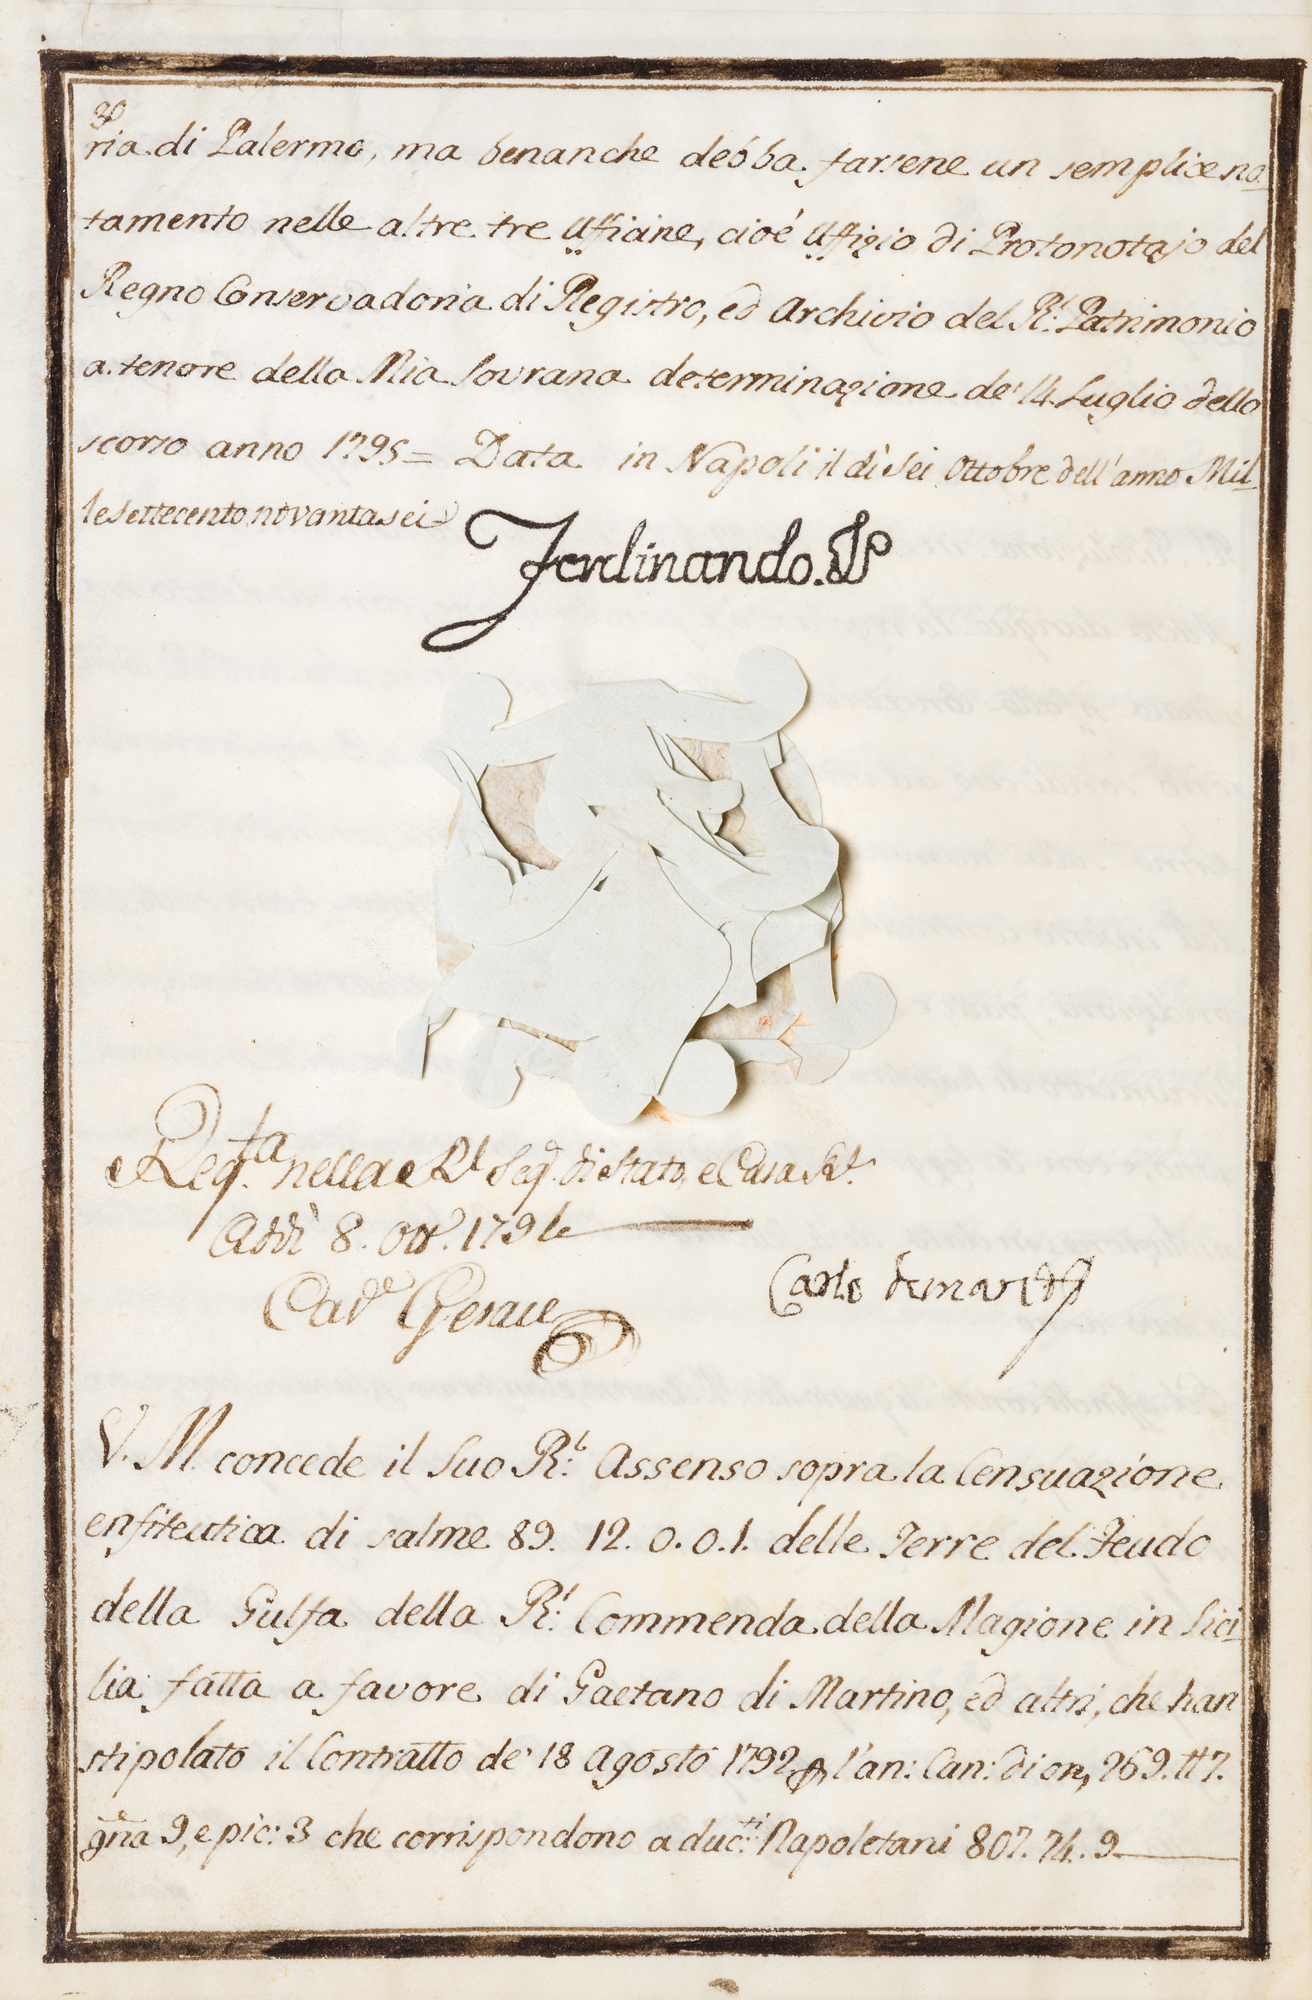 30
ria di Palermo, ma benanche debba farsene un semplice no-
tamento nelle altre tre Officine, cioé Uffizio di Protonotajo del
Regno Conservadoria di Registro, ed Archivio del R.l Patrimonio
a tenore della Mia Sovrana determinazione de' 14. Luglio dello
scorso anno 1795= Data in Napoli il dì Sei Ottobre dell'anno Mil-
le Settecento novantasei
Ferdinando.
Reg.ta nella R.l Seg.a di Stato, e Casa R.l
Addì 8. Ott.e
Cav.e Gerace
Carlo demarco
V. M. concede il Suo R.l Assenso sopra la Censuazione
enfiteutica di salme 89. 12. 0. 0. 1. delle Terre del Feudo
della Gulfa della R.l Commenda della Magione in Sici-
lia fatta a favore di Gaetano di Martino, ed altri, che han
stipolato il Contratto de' 18 Agosto 1792 l'an: Can: di on, 269. tt 7.
g.na 9, e pic: 3 che corrispondono a duc.ti Napoletani 807. 74. 9